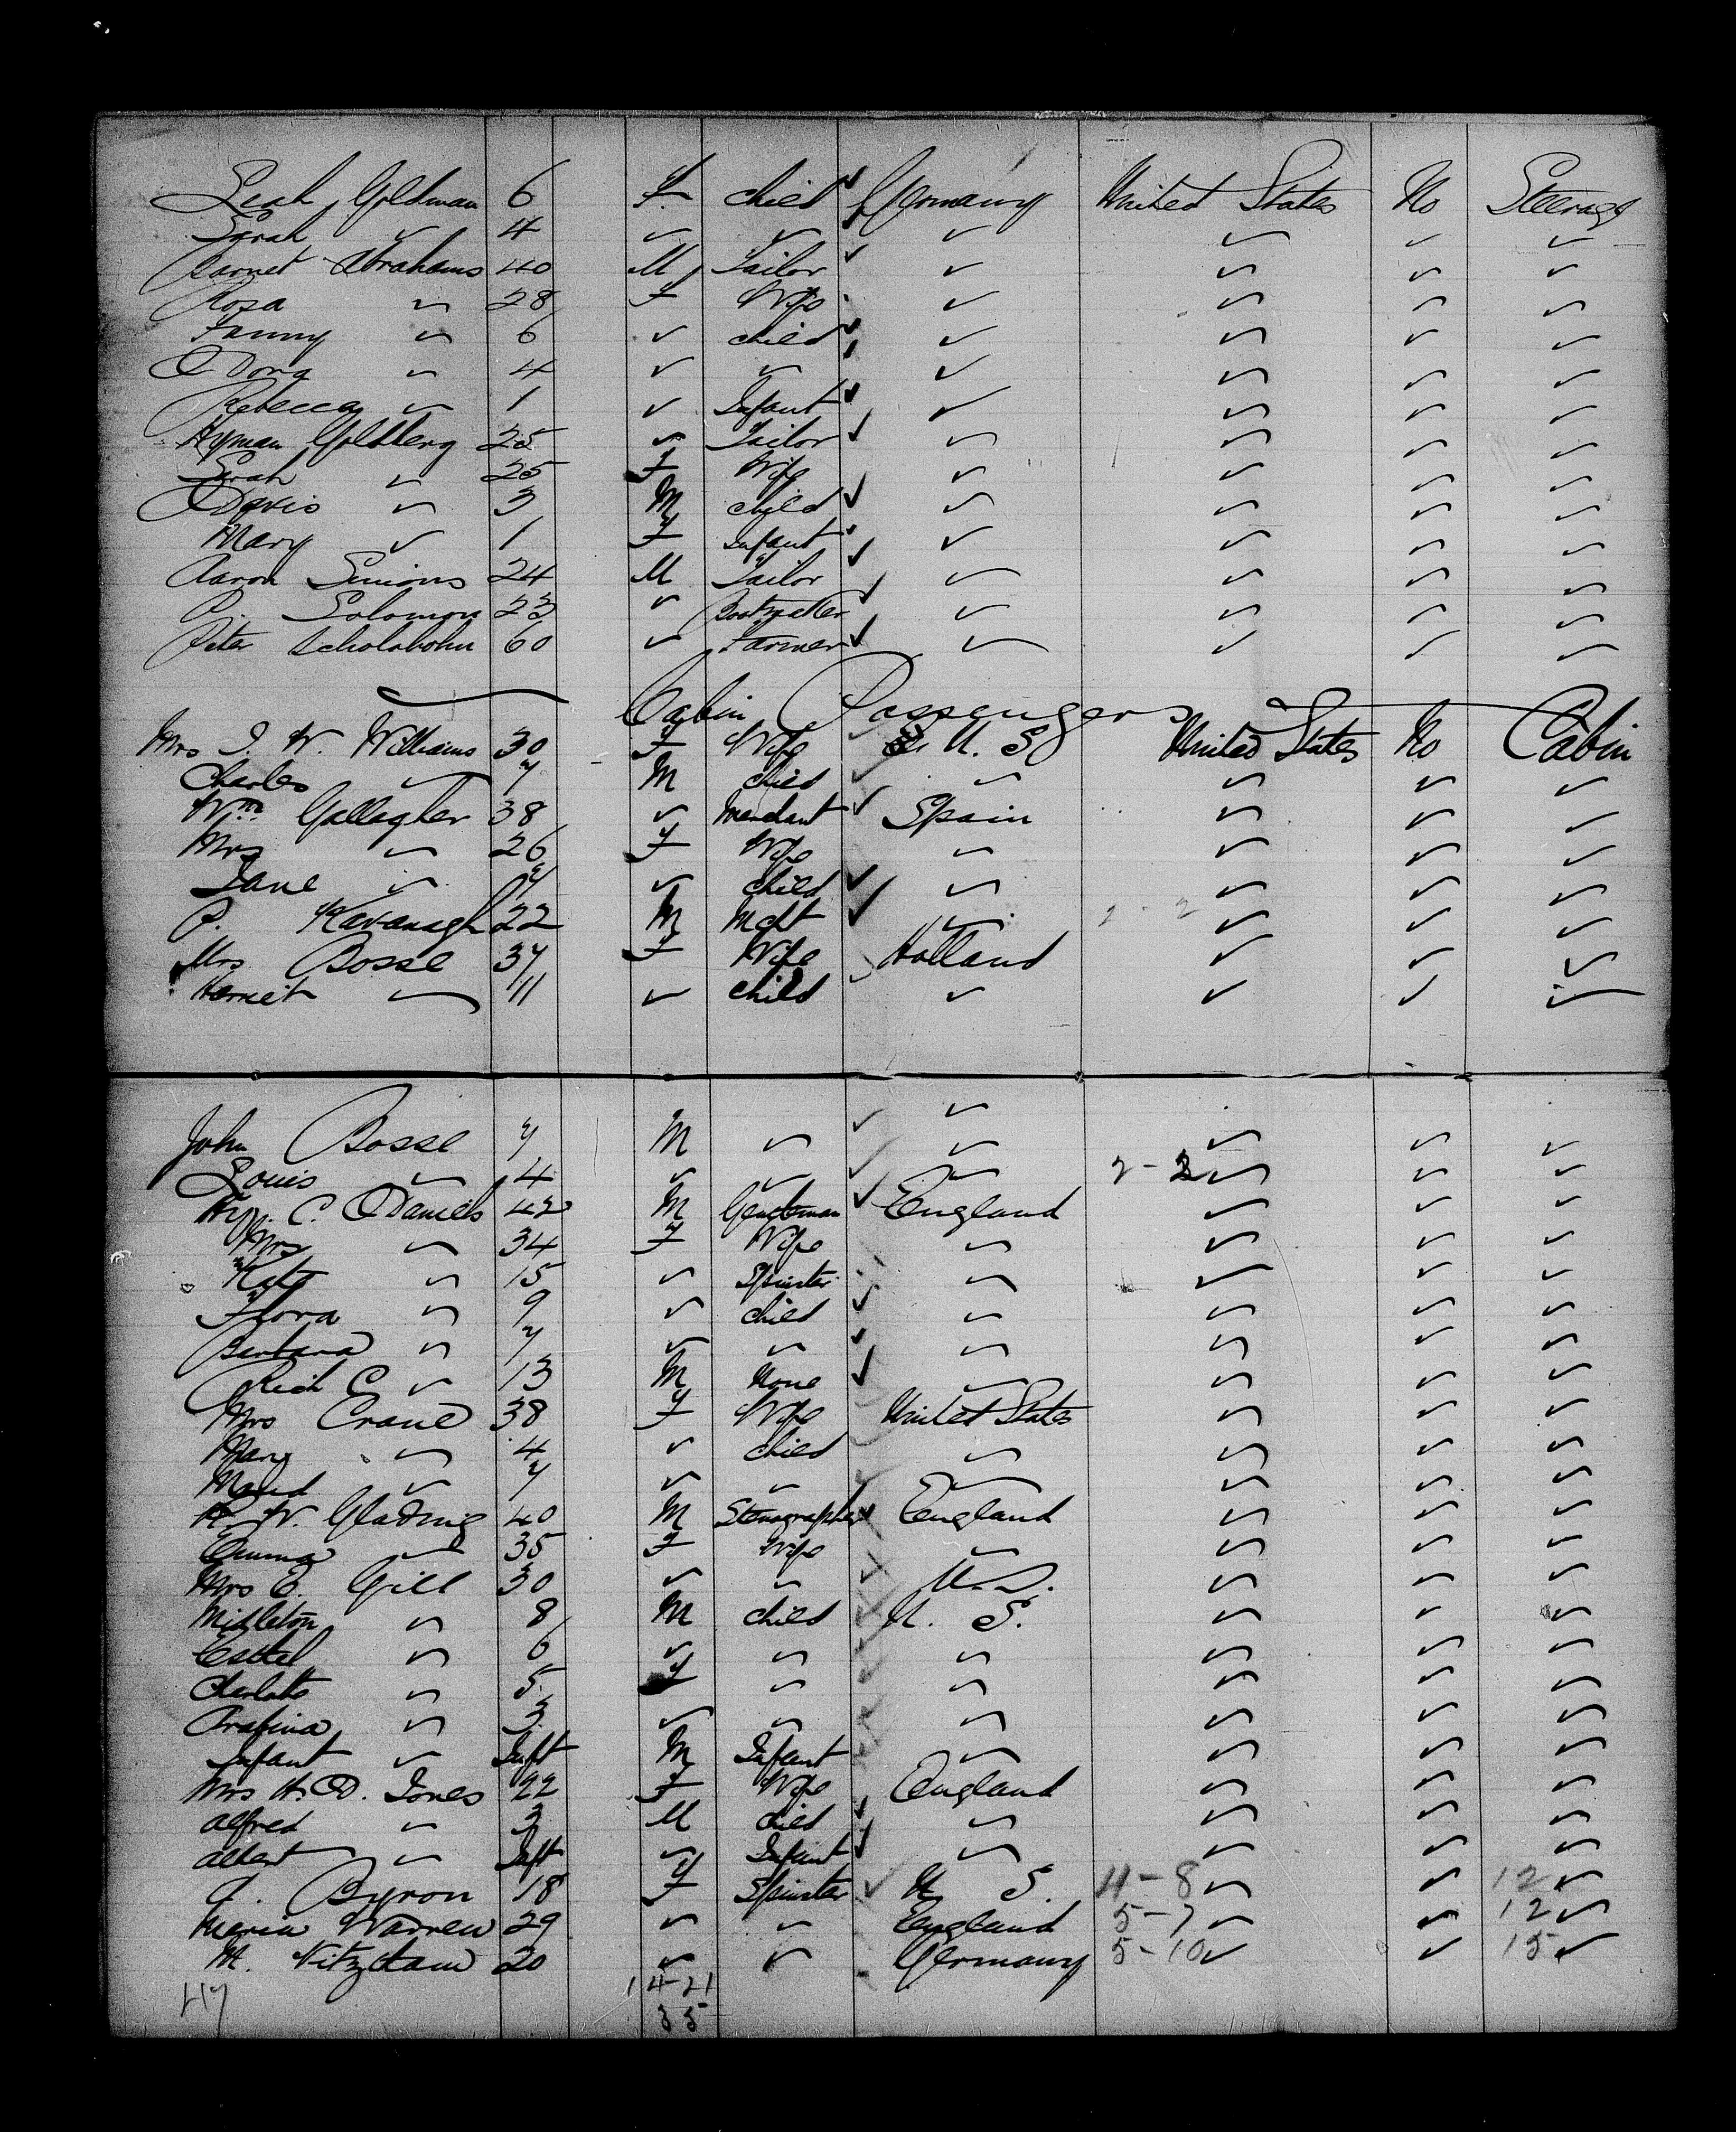 Leah Goldman 6 F. child Germany United States No Steerage
Sarah " 4 " " " " " "
Barnet Abrahams 40 M Tailor " " " "
Rosa " 28 F Wife " " " "
Fanny " 6 " child " " " "
Dora " 4 " " " " " "
Rebecca " 1 " Infant " " " "
Hyman Goldberg 25 " Tailor " " " "
Sarah " 25 F Wife " " " "
Davis " 3 M child " " " "
Mary " 1 F Infant " " " "
Aaron Simions 24 M Tailor " " " "
P. Solomon 23 " Bootmaker " " " "
Peter Scholabohn 60 " Farmer " " " "
Cabin Passengers
Mrs I. W. Williams 30 F Wife U. S. United States No Cabin
Charles " 7 M child " " " "
Wm Gallagher 38 " Merchant Spain " " "
Mrs " 26 F Wife " " " "
Jane " 7 " child " " " "
P. Kavanagh 22 M Mcht " " " "
Mrs Bosse 37 F Wife Holland " " "
Harriet " 11 " child " " " "
John Bosse 7 M " " " " "
Louis " 4 " " " 2-2 " " "
Hy. C. Daniels 42 M Gentleman England " " "
Mrs " 34 F Wife " " " "
Kate " 15 " Spinster " " " "
Flora " 9 " child " " " "
Barbara " 7 " " " " " "
Rich C " 13 M None " " " "
Mrs Crane 38 F Wife United States " " "
Mary " 4 " child " " " "
Maud " 7 " " " " " "
W. Glading 40 M Stenographer England " " "
Emma " 35 F Wife " " " "
Mrs E. Gill 30 " " U.S. " " "
Middleton " 8 M child U. S. " " "
Estel " 6 " " " " " "
Charlotte " 5 F " " " " "
" 3 " " " " " "
Infant " Inft M Infant " " " "
Mrs H. D. Jones 22 F Wife England " " "
Alfred " 3 M child " " " "
Albert " Inft " Infant " " " "
Byron 18 F Spinster U S. 11-8 " " 12 "
Maria Warren 29 " " England 5-7 " " 12 "
M. Nitzdam 20 " " Germany 5-10 " " 15 "
47 14-21
35